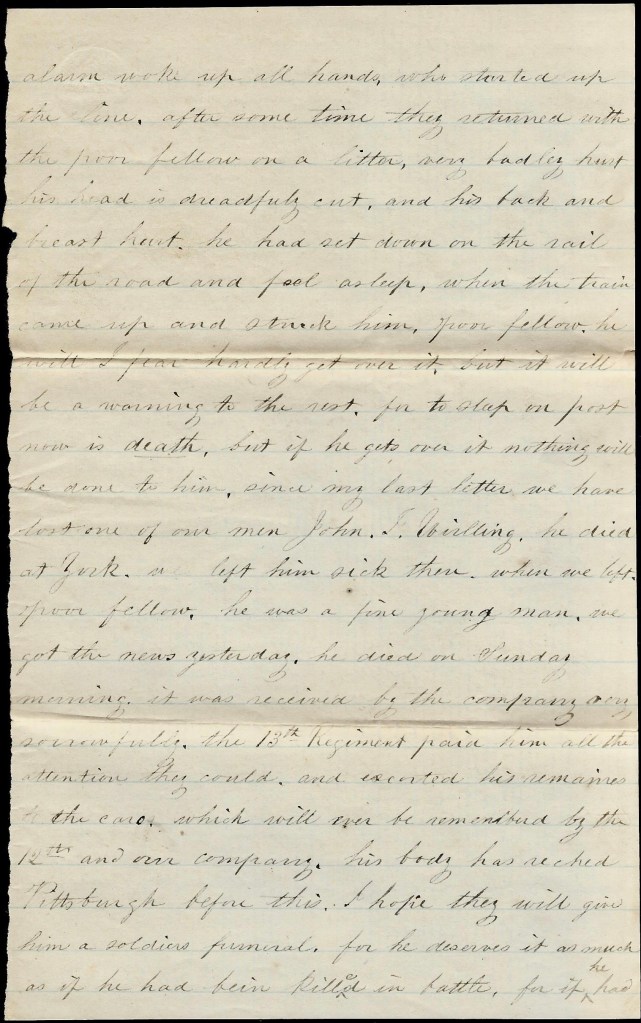 alarm woke up all hands, who started up
the line. after some time they returned with
the poor fellow on a litter, very badley hurt
his head is dreadfuly cut, and his back and
breast hurt. he had set down on the rail
of the road and feel asleep, when the train
came up and struck him, poor fellow. he
will I fear hardly get over it, but it will
be a warning to the rest. for to sleep on post
now is death, but if he gets over it nothing will
be done to him, since my last letter we have
lost one of our men John. I. he died
at York. left him sick then. when we left.
poor fellow, he was a fine young man. we
got the news yesterday. he died on Sunday
morning. it was received by the company very
sorrowfully. the 13th Regiment paid him all the
attention they could. and escorted his remaines
the cars. which will ever be rememberd by the
12th and our company. his body has reched
Pittsburgh before this. I hope they will give
him a soldiers funeral. for he deserves it as much
as if he had bein killed in battle, for if he had